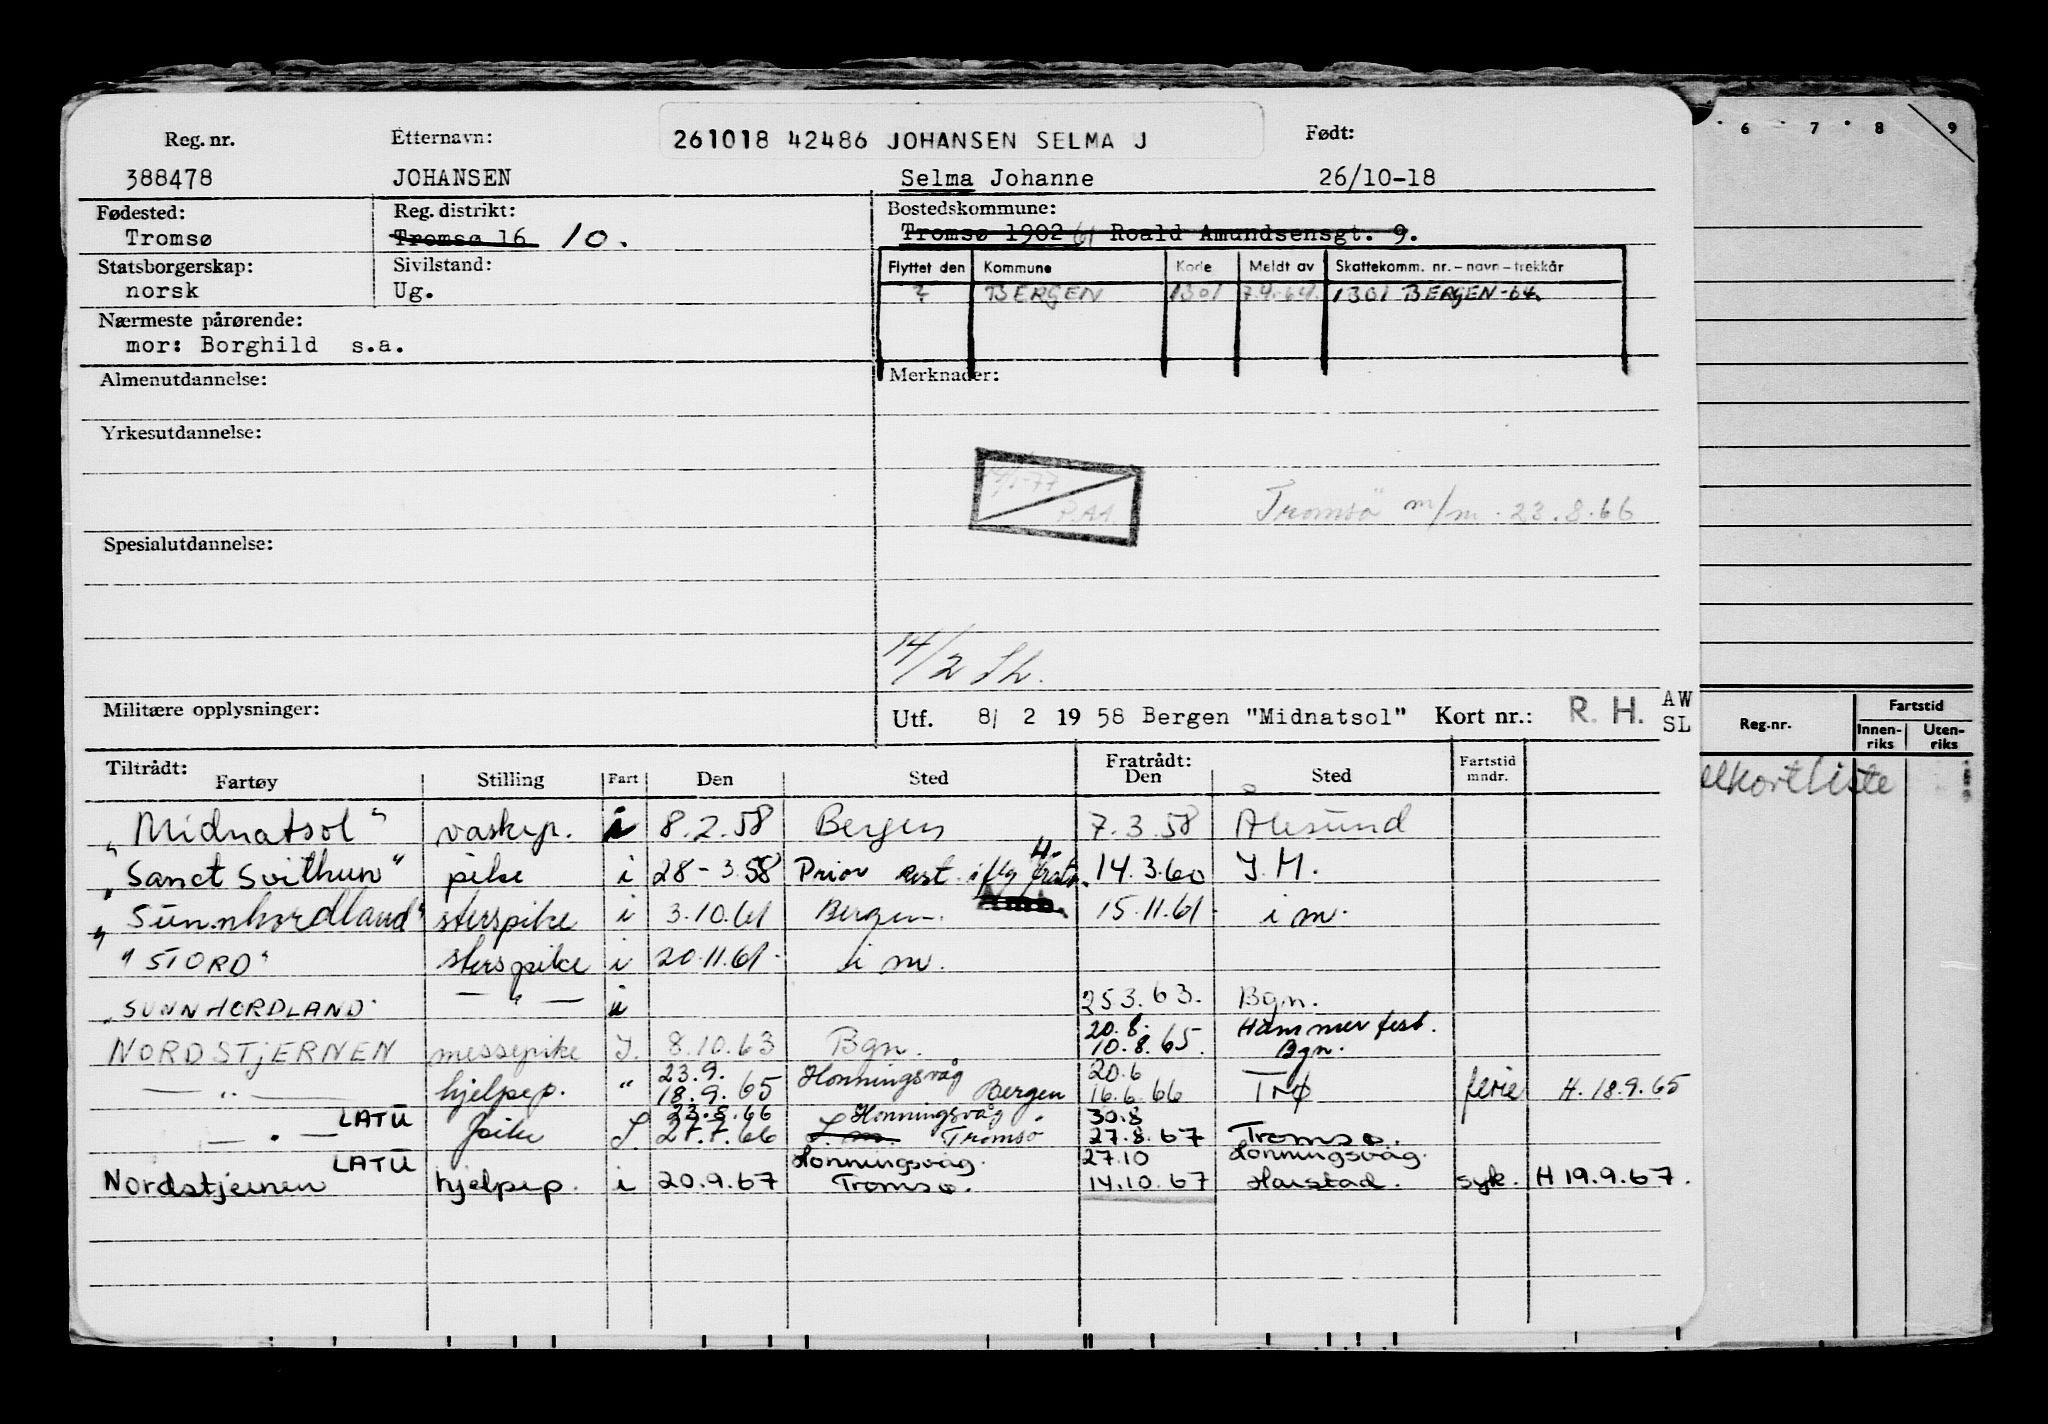 Reg. nr. Etternavn: 261018 42486 JOHANSEN SELMA J Født:
388478 JOHANSEN Selma Johanne 26/10-18
Fødested: Reg. distrikt: Bostedskommune:
Tromsø Tromsø 16 10. Tromsø 1902 61 Roald Amundsensgt. 9.
Statsborgerskap: Sivilstand: Flyttet den Kommune Kode Meldt av Skattekomm. nr. – navn – trekkår
norsk Ug. ? BERGEN 1301 1301 BERGEN-64.
Nærmeste pårørende:
mor: Borghild s.a.
Almenutdannelse: Merknader:
Yrkesutdannelse:
Tromsø m/m. 23.8.66
Spesialutdannelse:
14/2 Sh.
Militære opplysninger: Utf. 8/ 2 19 58 Bergen "Midnatsol" Kort nr.: R. H. AW SL
Tiltrådt: Fratrådt: Fartstid mndr.
Fartøy Stilling Fart Den Sted Den Sted
"Midnatsol" vaskep. i 8.2.58 Bergen 7.3.58 Ålesund
"Sanct Svithun" pike i 28-3.58 Prior 14.3.60 I.M.
"Sunnhordland" sterspike i 3.10.61 Bergen. 15.11.61. i m.
"STORD" sterspike i 20.11.61. i m.
"SUNNHORDLAND" — " — i 25 3. 63. Bgn.
20.8. Hammerfest.
NORDSTJERNEN messepike I. 8.10.63 Bgn. 10.8.65. Bgn.
23.9. Honningsvåg 20.6
— " — hjelpep. " 18.9.65 Bergen 16.6.66 TMØ ferie H. 18.9.65
LATU 23.8.66 Honningsvåg 30.8
— " — pike I 27.7.66 I.m. Tromsø 27.8.67 Tromsø.
LATU Honningsvåg. 27.10 Honningsvåg.
Nordstjernen hjelpep. i 20.9.67 Tromsø. 14.10.67 Harstad. syk. H 19.9.67.
6 7 8 9
Reg.nr. Fartstid
Innenriks Utenriks
elkortliste